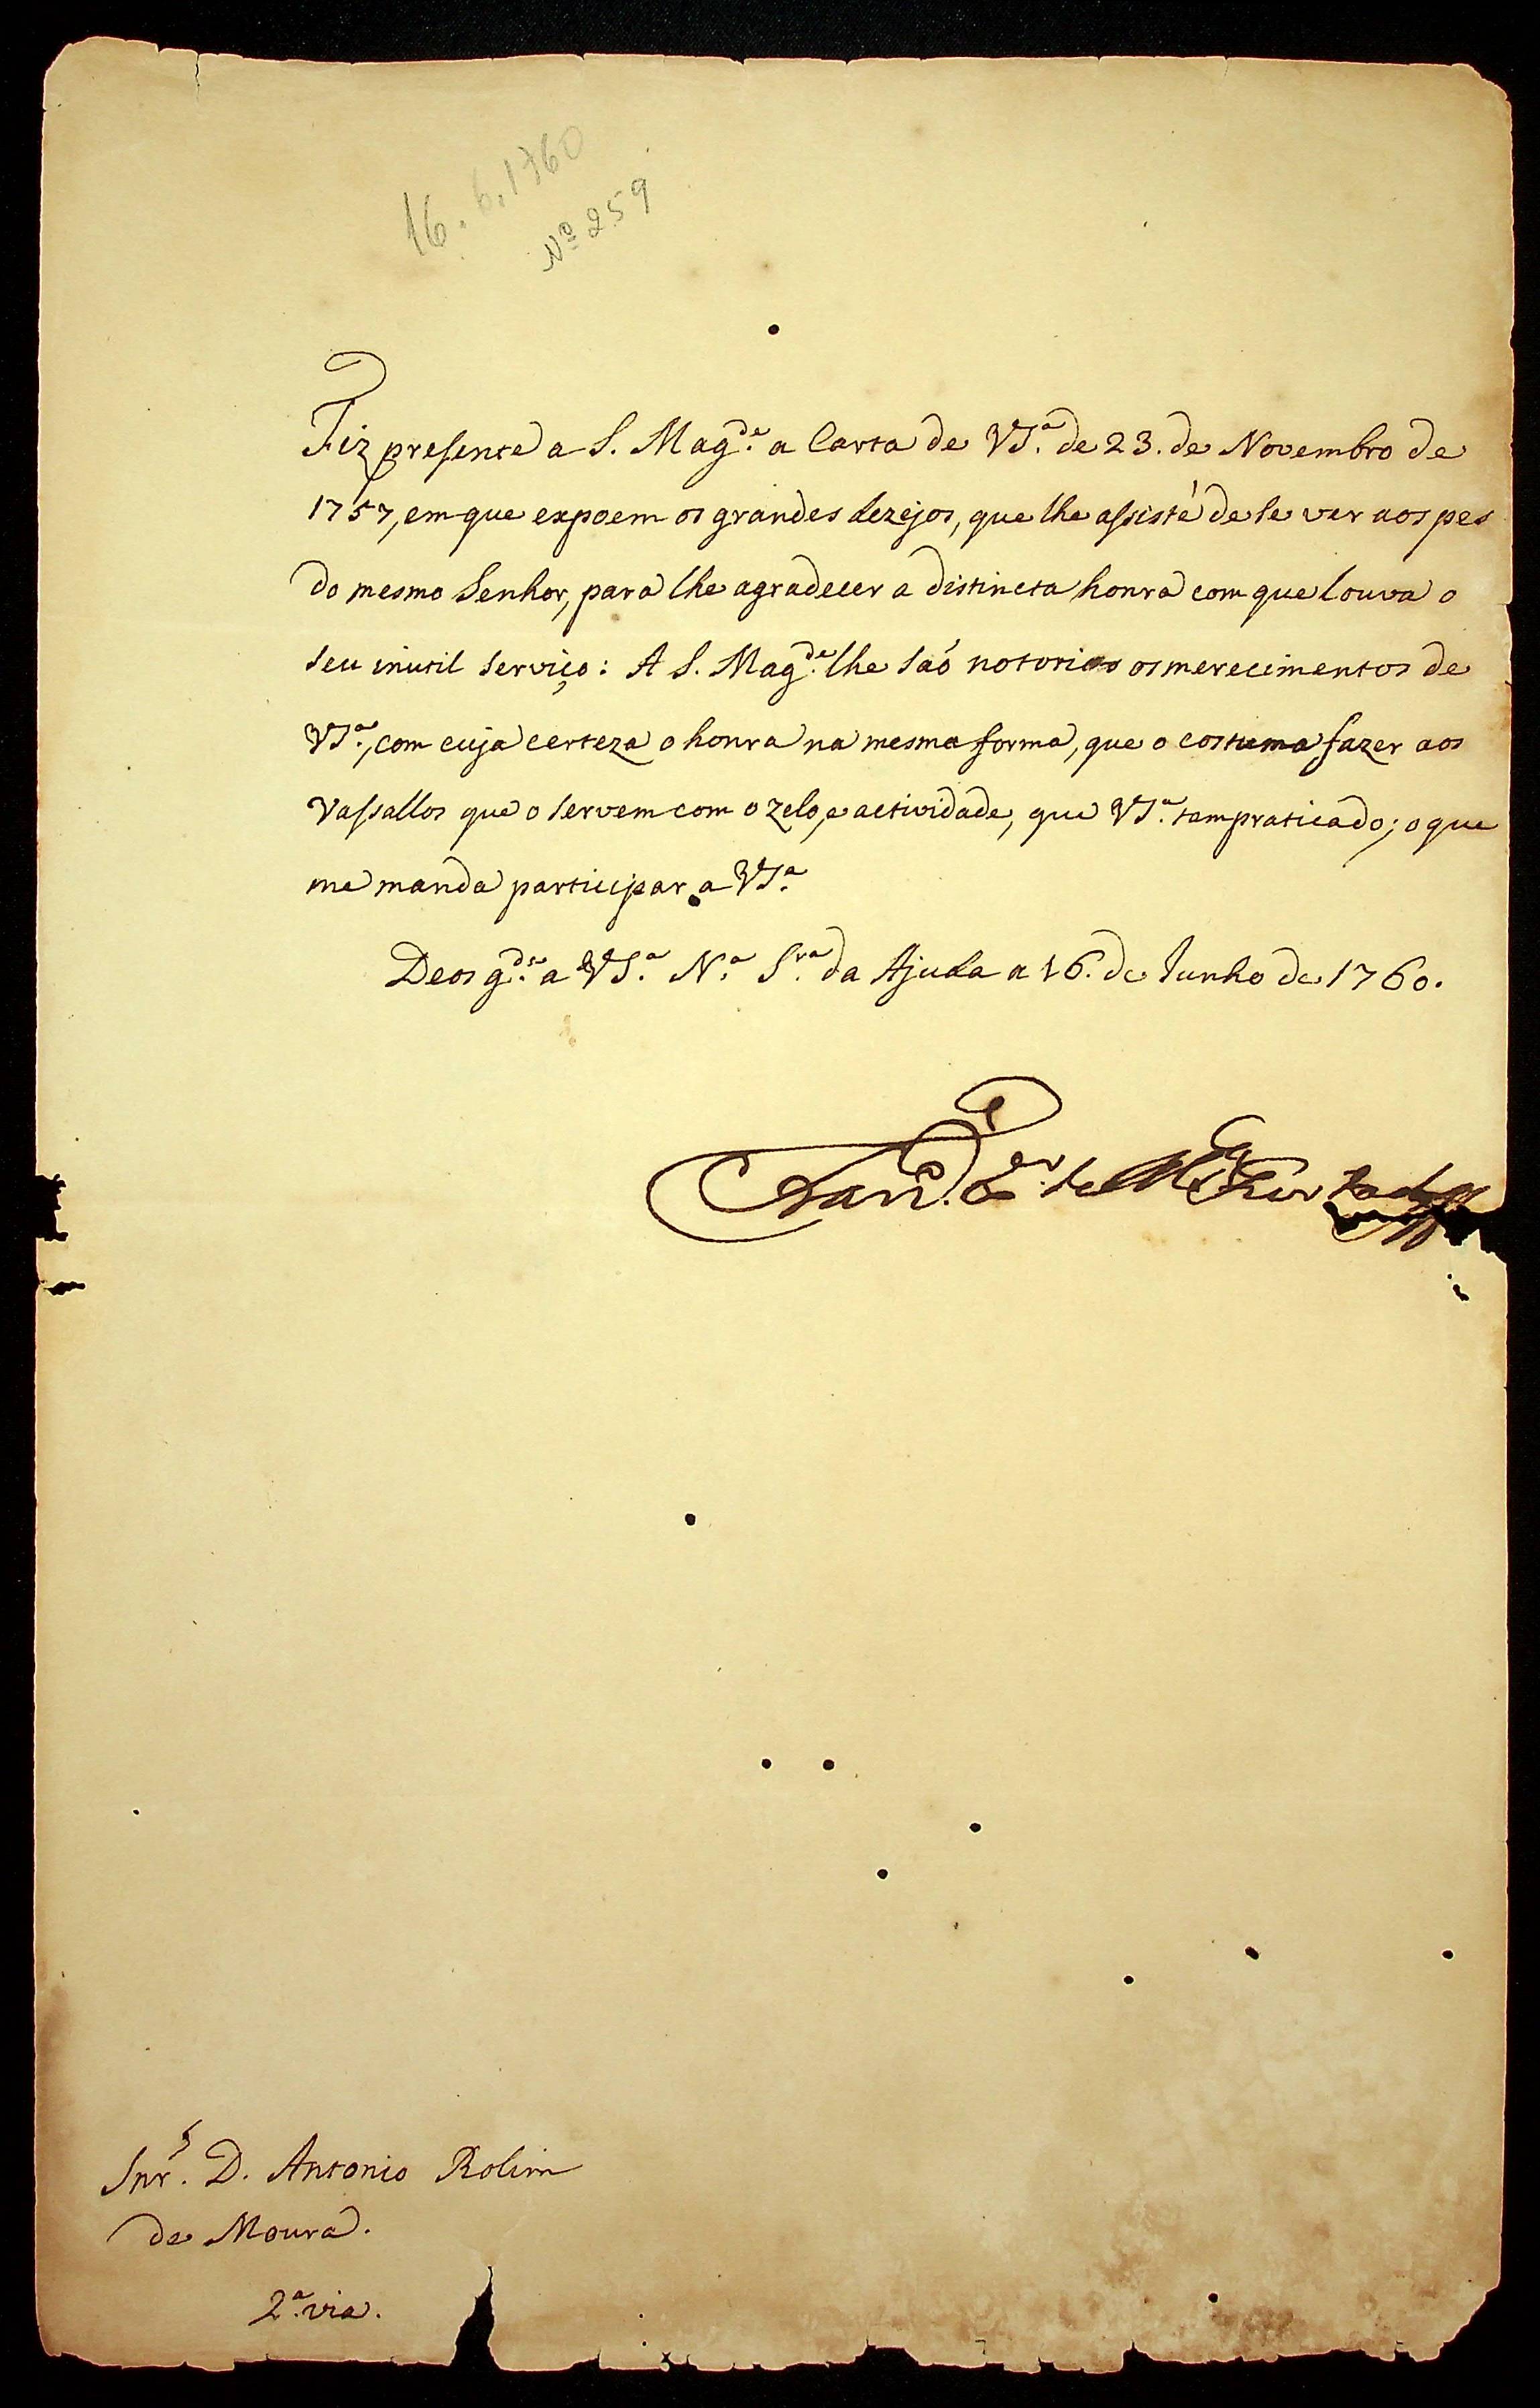 16.6.1760
Nº 259
Fiz presente a S. Mag.de a Carta de VS.ª de 23. de Novembro de
1757, em que expoem os grandes dezejos, que lhe assiste de se ver aos pes
do mesmo Senhor, para lhe agradecer a distincta honra com que louva o
seu inutil serviço: A S. Mag.de lhe saó notorios os merecimentos de
VS.ª, com cuja certeza o honra na mesma forma, que o costuma fazer aos
Vassallos que o servem com o zelo, e actividade, que VS.ª tem praticado; o que
me manda participar a VS.ª
Deos g.de a VS.ª N.ª S.ra da Ajuda a 16. de Junho de 1760.
Fran.co X.er de M.ça Furtado
Snr. D. Antonio Rolim
de Moura.
2.ª via.